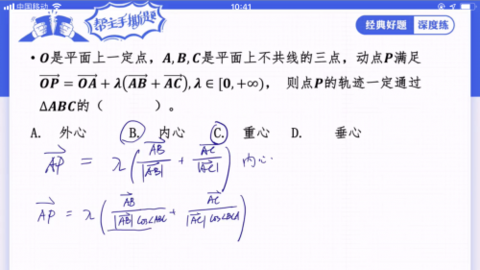 中国移动 10:41
帮主手撕题 经典好题 深度练
• O是平面上一定点，A,B,C是平面上不共线的三点，动点P满足
$\overrightarrow{OP}=\overrightarrow{OA}+\lambda(\overrightarrow{AB}+\overrightarrow{AC}),\lambda\in[0,+\infty)$， 则点P的轨迹一定通过
ΔABC的（ ）。
A. 外心 B. 内心 C. 重心 D. 垂心
$\overrightarrow{AP}=\lambda\left(\frac{\overrightarrow{AB}}{|\overrightarrow{AB}|}+\frac{\overrightarrow{AC}}{|\overrightarrow{AC}|}\right)$ 内心
$\overrightarrow{AP}=\lambda\left(\frac{\overrightarrow{AB}}{|\overrightarrow{AB}|\cos\angle ABC}+\frac{\overrightarrow{AC}}{|\overrightarrow{AC}|\cos\angle BCA}\right)$